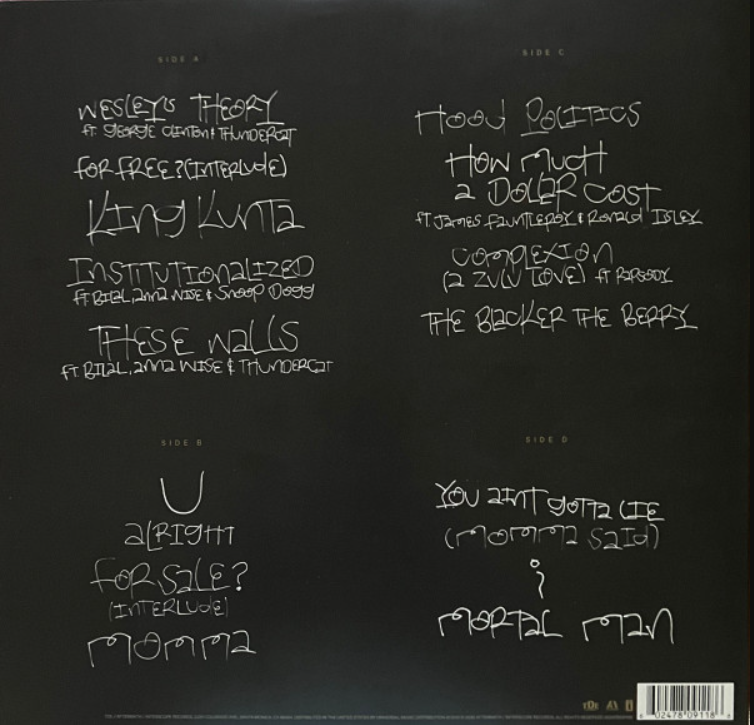 SIDE A
WESLEY'S THEORY
ft. GEORGE CLINTON & THUNDERCAT
FOR FREE? (INTERLUDE)
KING KUNTA
INSTITUTIONALIZED
ft BILAL, ANNA WISE & SNOOP DOGG
THESE WALLS
ft BILAL, ANNA WISE & THUNDERCAT
SIDE B
U
ALRIGHT
FOR SALE?
(INTERLUDE)
MOMMA
SIDE C
HOOD POLITICS
HOW MUCH
A DOLLAR COST
ft. JAMES FAUNTLEROY & RONALD ISLEY
COMPLEXION
(A ZULU LOVE) ft RAPSODY
THE BLACKER THE BERRY
SIDE D
YOU AINT GOTTA LIE
(MOMMA SAID)
i
MORTAL MAN
6 02478 09118